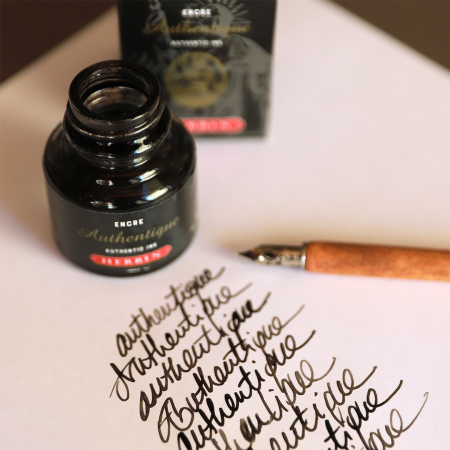 ENCRE
Authentique
AUTHENTIC INK
HERBIN
ENCRE
Authentique
AUTHENTIC INK
HERBIN
authentique
Authentique
authentique
Authentique
authentique
thentique
entique
tique
que